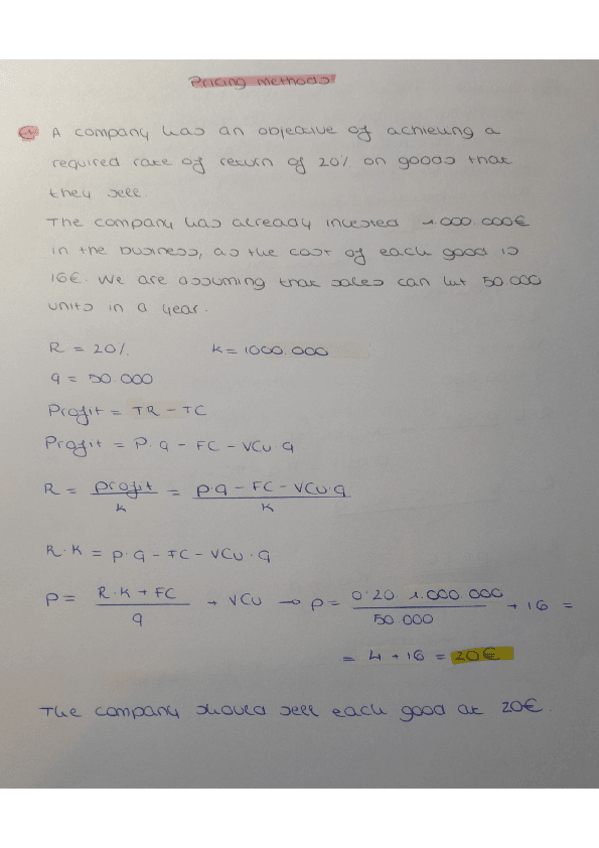 Pricing methods
A company has an objective of achieving a
required rate of return of 20% on goods that
they sell.
The company has already invested 1.000.000€
in the business, as the cost of each good is
16€. We are assuming that sales can hit 50.000
units in a year.
R = 20% K = 1000.000
q = 50.000
Profit = TR - TC
Profit = P.q - FC - VCu.q
R = profit / K = p.q - FC - VCu.q / K
R.K = p.q - FC - VCu.q
P = R.K + FC / q + VCu → p = 0'20 1.000.000 / 50.000 + 16 =
= 4 + 16 = 20€
The company should sell each good at 20€.